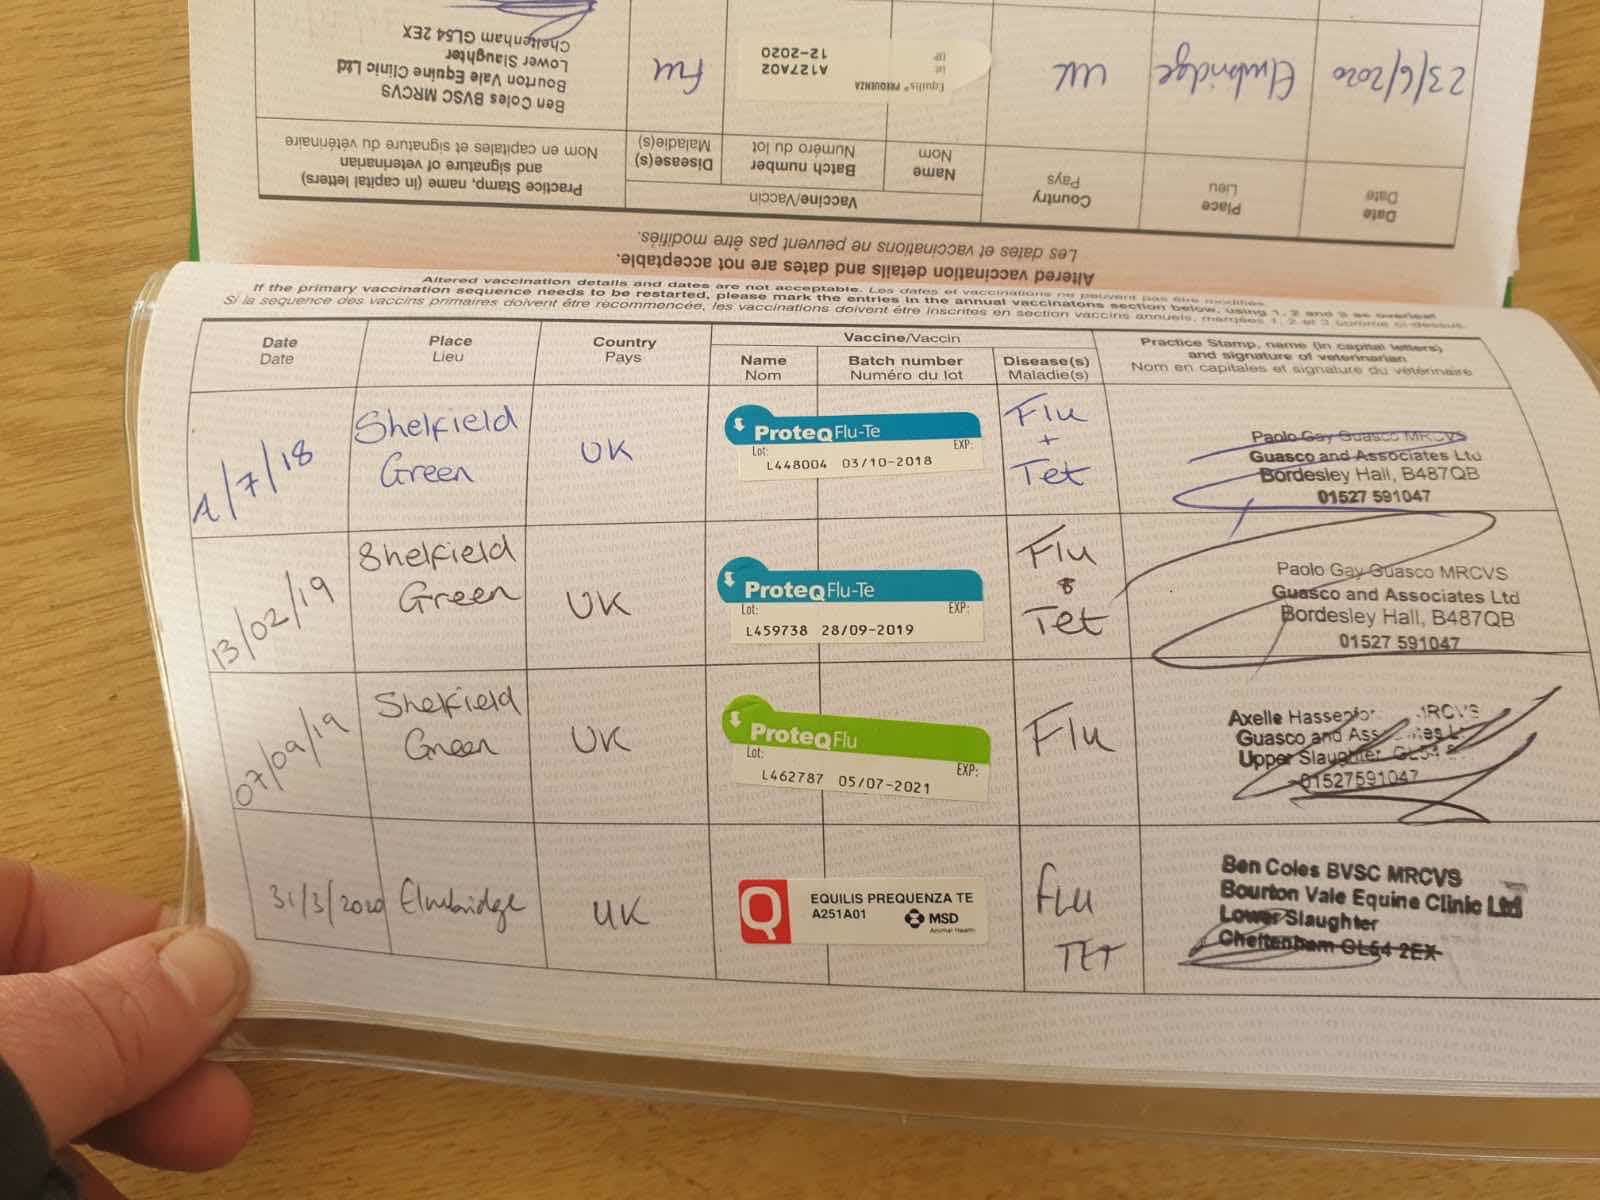 23/6/2020
Elmbridge
UK
Equilis® PREQUENZA
Lot
A127A02
EXP
12-2020
Flu
Ben Coles BVSC MRCVS
Bourton Vale Equine Clinic Ltd
Lower Slaughter
Cheltenham GL54 2EX
Date
Date
Place
Lieu
Country
Pays
Vaccine/Vaccin
Name
Nom
Batch number
Numéro du lot
Disease(s)
Maladie(s)
Practice Stamp, name (in capital letters)
and signature of veterinarian
Nom en capitales et signature du vétérinaire
Altered vaccination details and dates are not acceptable.
Les dates et vaccinations ne peuvent pas être modifiés.
Altered vaccination details and dates are not acceptable. Les dates et vaccinations ne peuvent pas être modifiés.
If the primary vaccination sequence needs to be restarted, please mark the entries in the annual vaccinatons section below, using 1, 2 and 3 as overleaf
Si la sequence des vaccins primaires doivent être recommencée, les vaccinations doivent être inscrites en section vaccins annuels, marquées 1, 2 et 3 comme ci-dessus.
Date
Date
Place
Lieu
Country
Pays
Vaccine/Vaccin
Name
Nom
Batch number
Numéro du lot
Disease(s)
Maladie(s)
Practice Stamp, name (in capital letters)
and signature of veterinarian
Nom en capitales et signature du vétérinaire
/7/18
Shelfield
Green
UK
ProteqFlu-Te
Lot: EXP:
L448004 03/10-2018
Flu
+
Tet
Paolo Gay Guasco MRCVS
Guasco and Associates Ltd
Bordesley Hall, B487QB
01527 591047
13/02/19
Shelfield
Green
UK
ProteqFlu-Te
Lot: EXP:
L459738 28/09-2019
Flu
&
Tet
Paolo Gay Guasco MRCVS
Guasco and Associates Ltd
Bordesley Hall, B487QB
01527 591047
07/09/19
Shelfield
Green
UK
ProteqFlu
Lot: EXP:
L462787 05/07-2021
Flu
Axelle MRCVS
Guasco and
Upper Slaughter GL54
01527591047
31/3/2020
Elmbridge
UK
Q
EQUILIS PREQUENZA TE
A251A01
MSD
Animal Health
FLU
TET
Ben Coles BVSC MRCVS
Bourton Vale Equine Clinic Ltd
Lower Slaughter
Cheltenham GL54 2EX